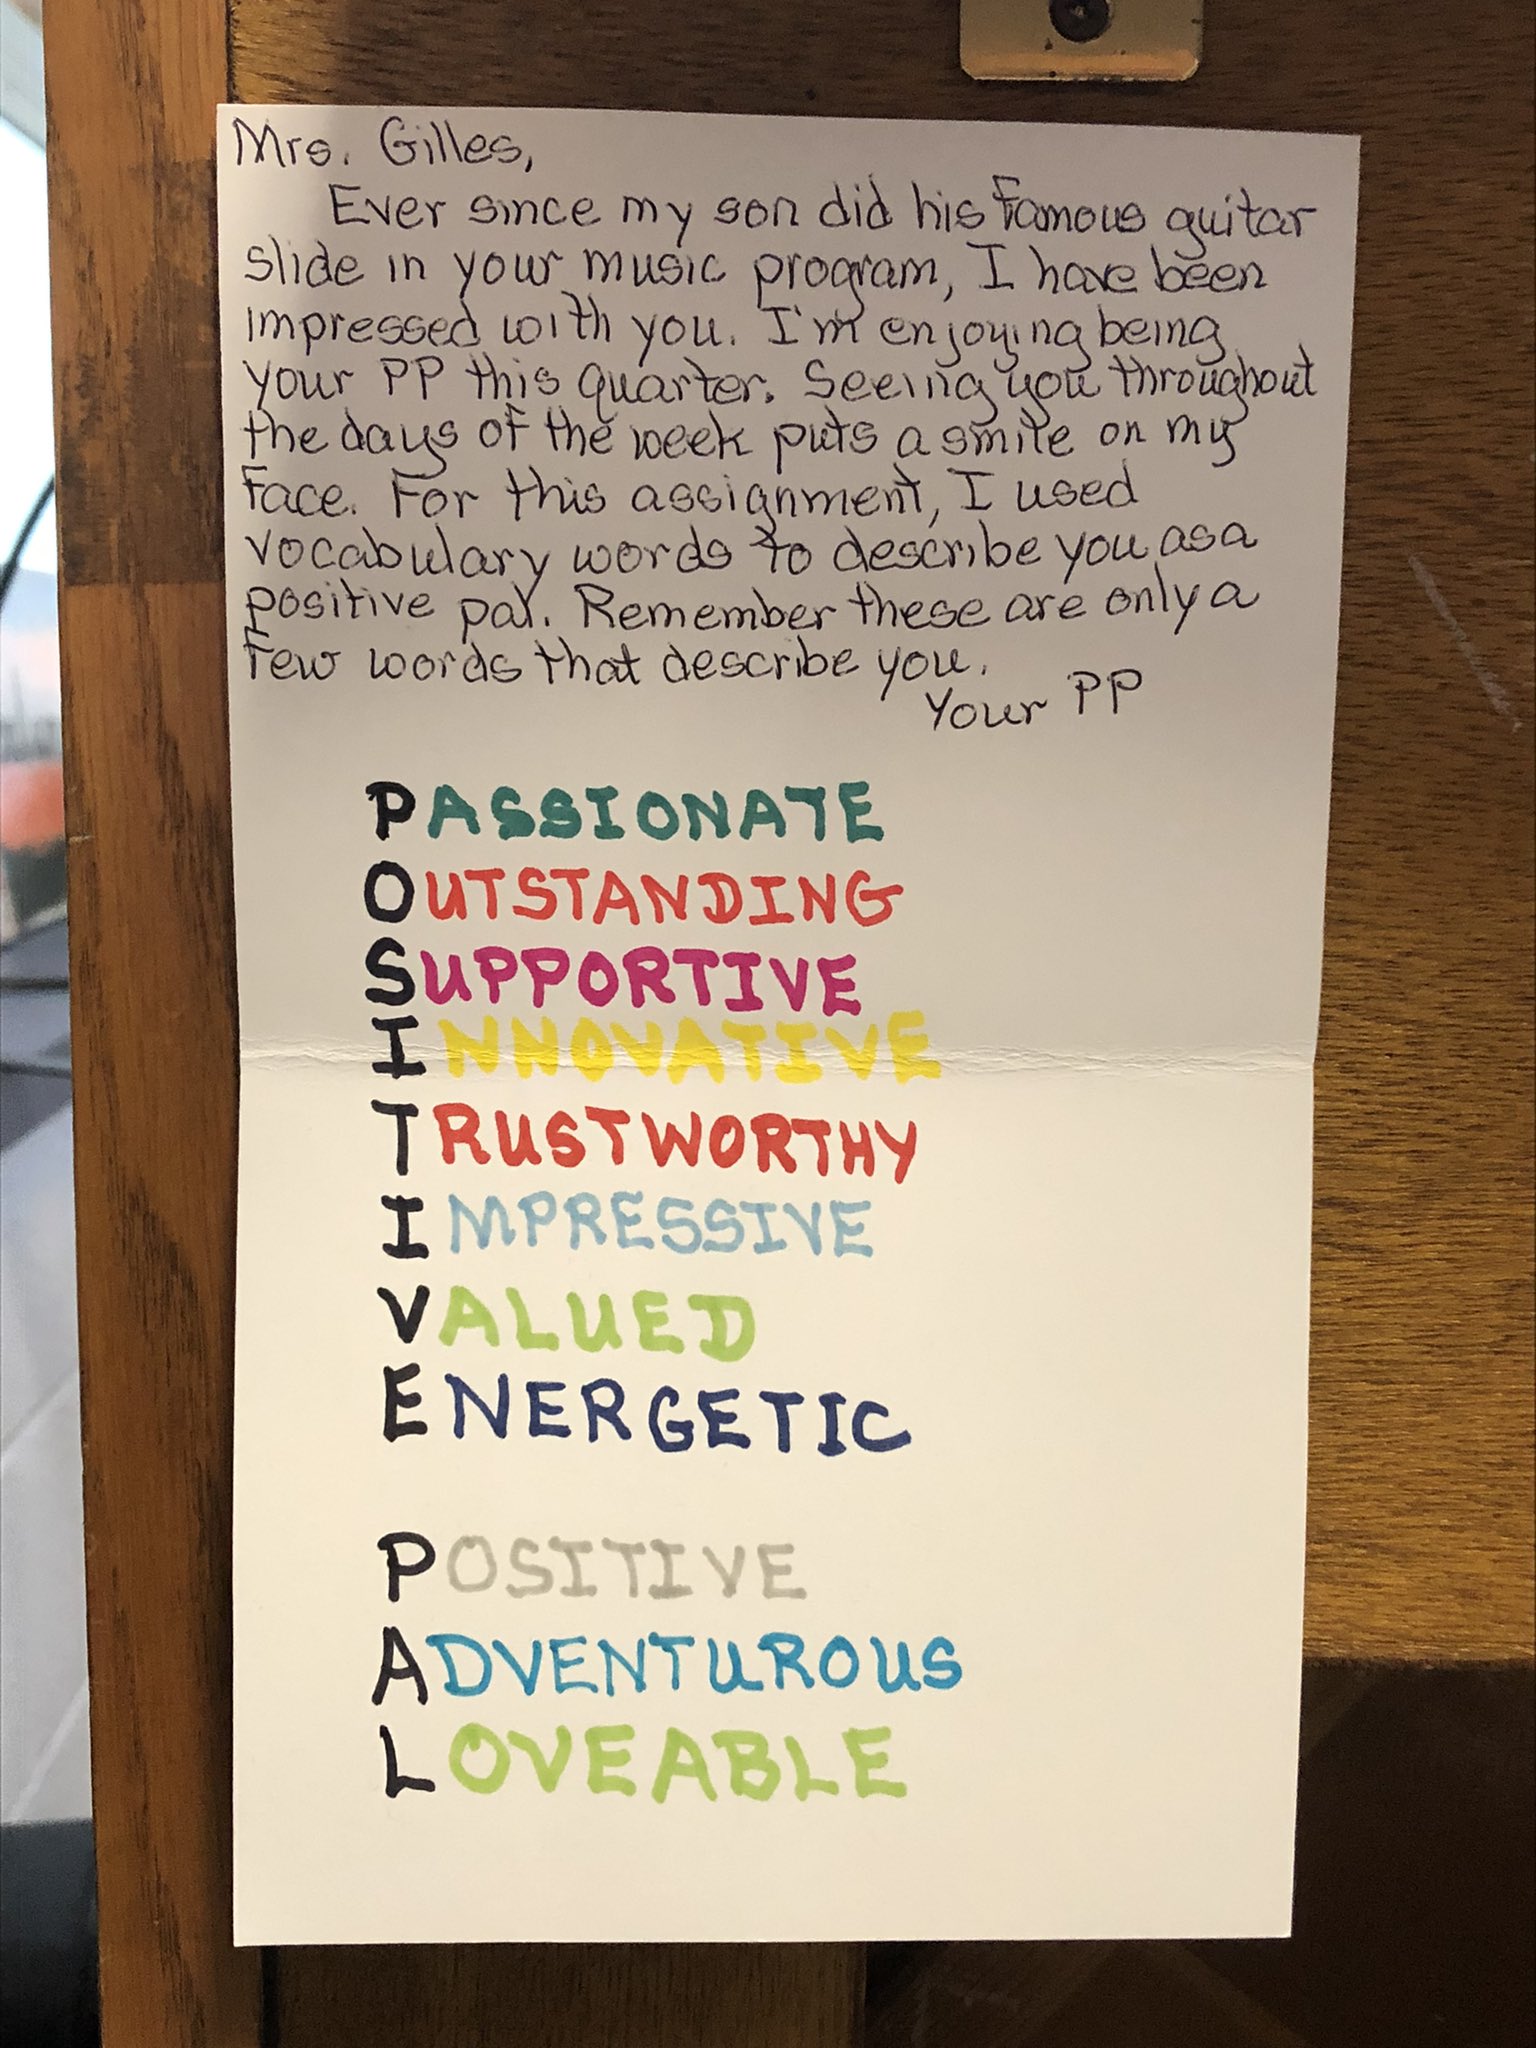 Mrs. Gilles,
Ever since my son did his famous guitar
slide in your music program, I have been
impressed with you. I'm enjoying being
your PP this quarter. Seeing you throughout
the days of the week puts a smile on my
face. For this assignment, I used
vocabulary words to describe you as a
positive pal. Remember these are only a
few words that describe you.
Your PP
PASSIONATE
OUTSTANDING
SUPPORTIVE
INNOVATIVE
TRUSTWORTHY
IMPRESSIVE
VALUED
ENERGETIC
POSITIVE
ADVENTUROUS
LOVEABLE